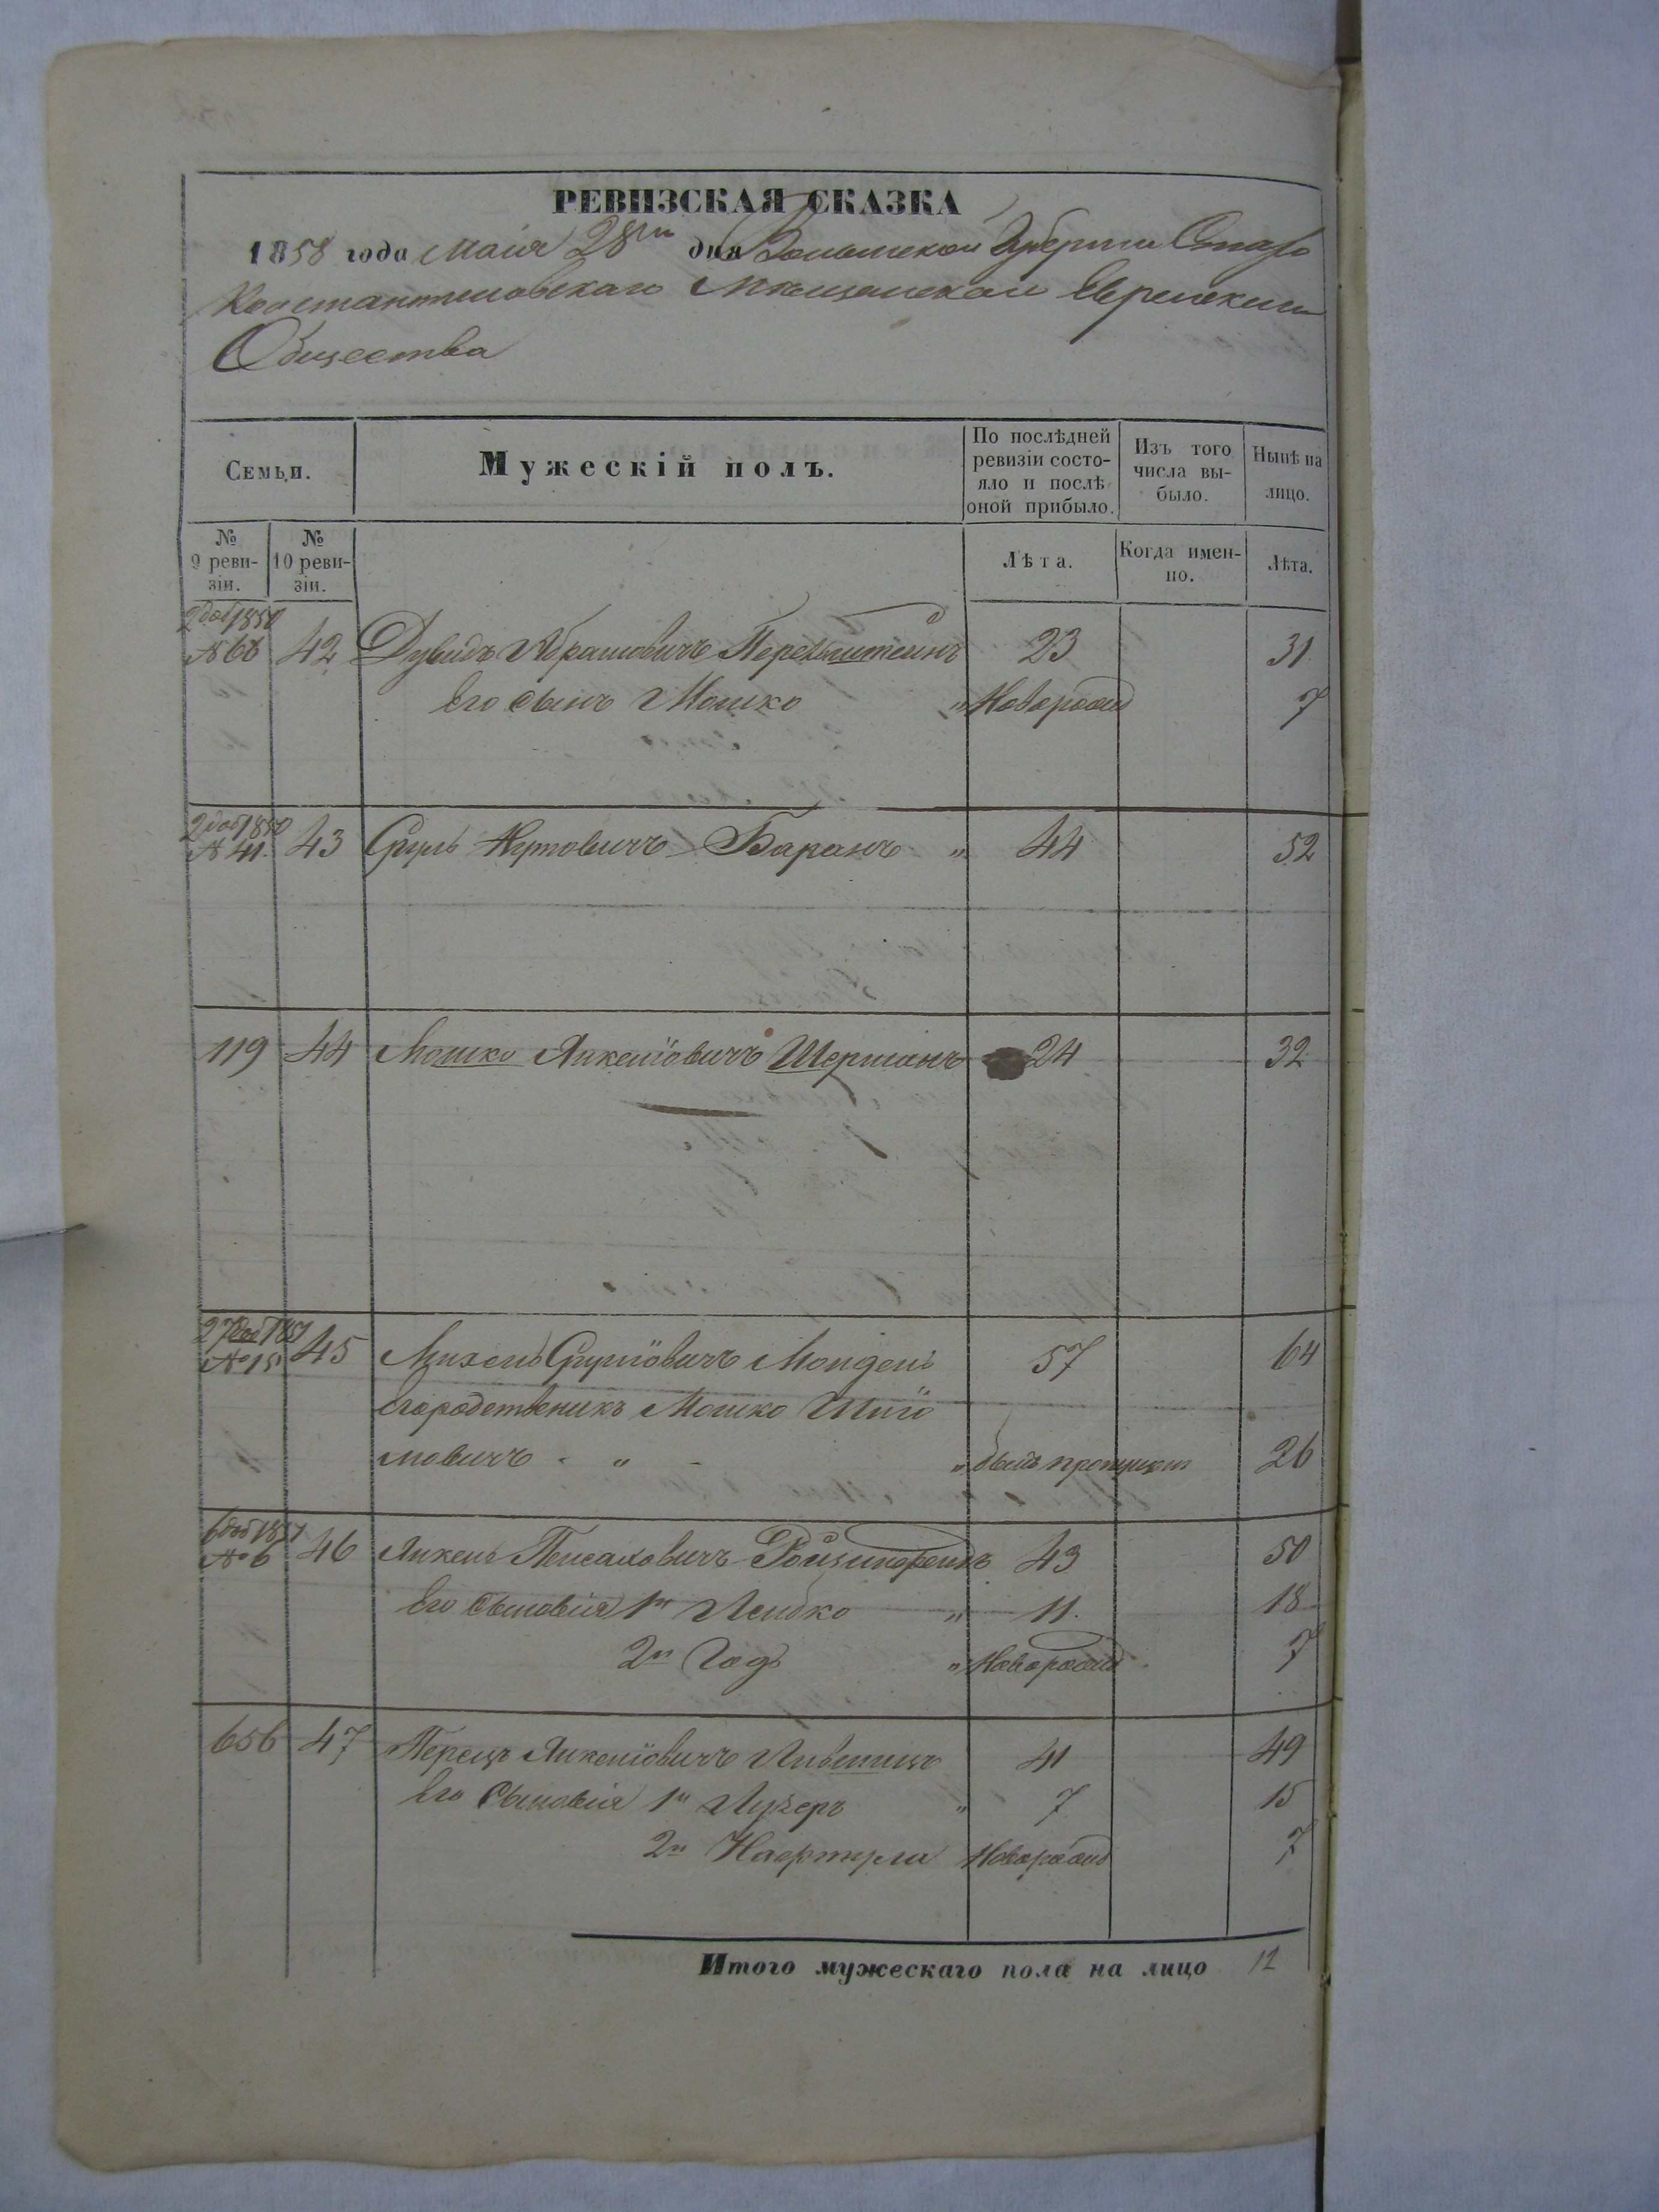 РЕВИЗСКАЯ СКАЗКА
1858 года Маія 28го дня Волынской Губерніи Старо
Константиновскаго Мѣщанскаго Еврейскаго
Общества
Семьи.
Мужескій полъ.
По послѣдней ревизіи состо-
яло и послѣ
оной прибыло.
Изъ того
числа вы-
было.
Нынѣ на
лицо.
№
9 реви-
зіи.
№
10 реви-
зіи.
Лѣта.
Когда имен-
но.
Лѣта.
2 доп 1850
№ 42 Дувидъ Абрамовичъ 23 31
Его сынъ Мошко " Новорожд 7
2 доп 1850
№ 41 43 Сруль Баранъ " 44 52
119 44 Мошко Янкелiовичъ Шерманъ 24 32
№ 15 45 Сруліовичъ 57 64
Его родственникъ Мошко
мовичъ " " былъ пропущен 26
6 доп 1851
№ 6 46 Янкель Пейсаховичъ 43 50
Его сыновія 1й Лейбко " 11 18
2й " Новорожд 7
656 47 Перецъ Янкелiовичъ Лившицъ 41 49
Его сыновія 1й Лузеръ " 7 15
2й Нафтули Новорожд 7
Итого мужескаго пола на лицо 12